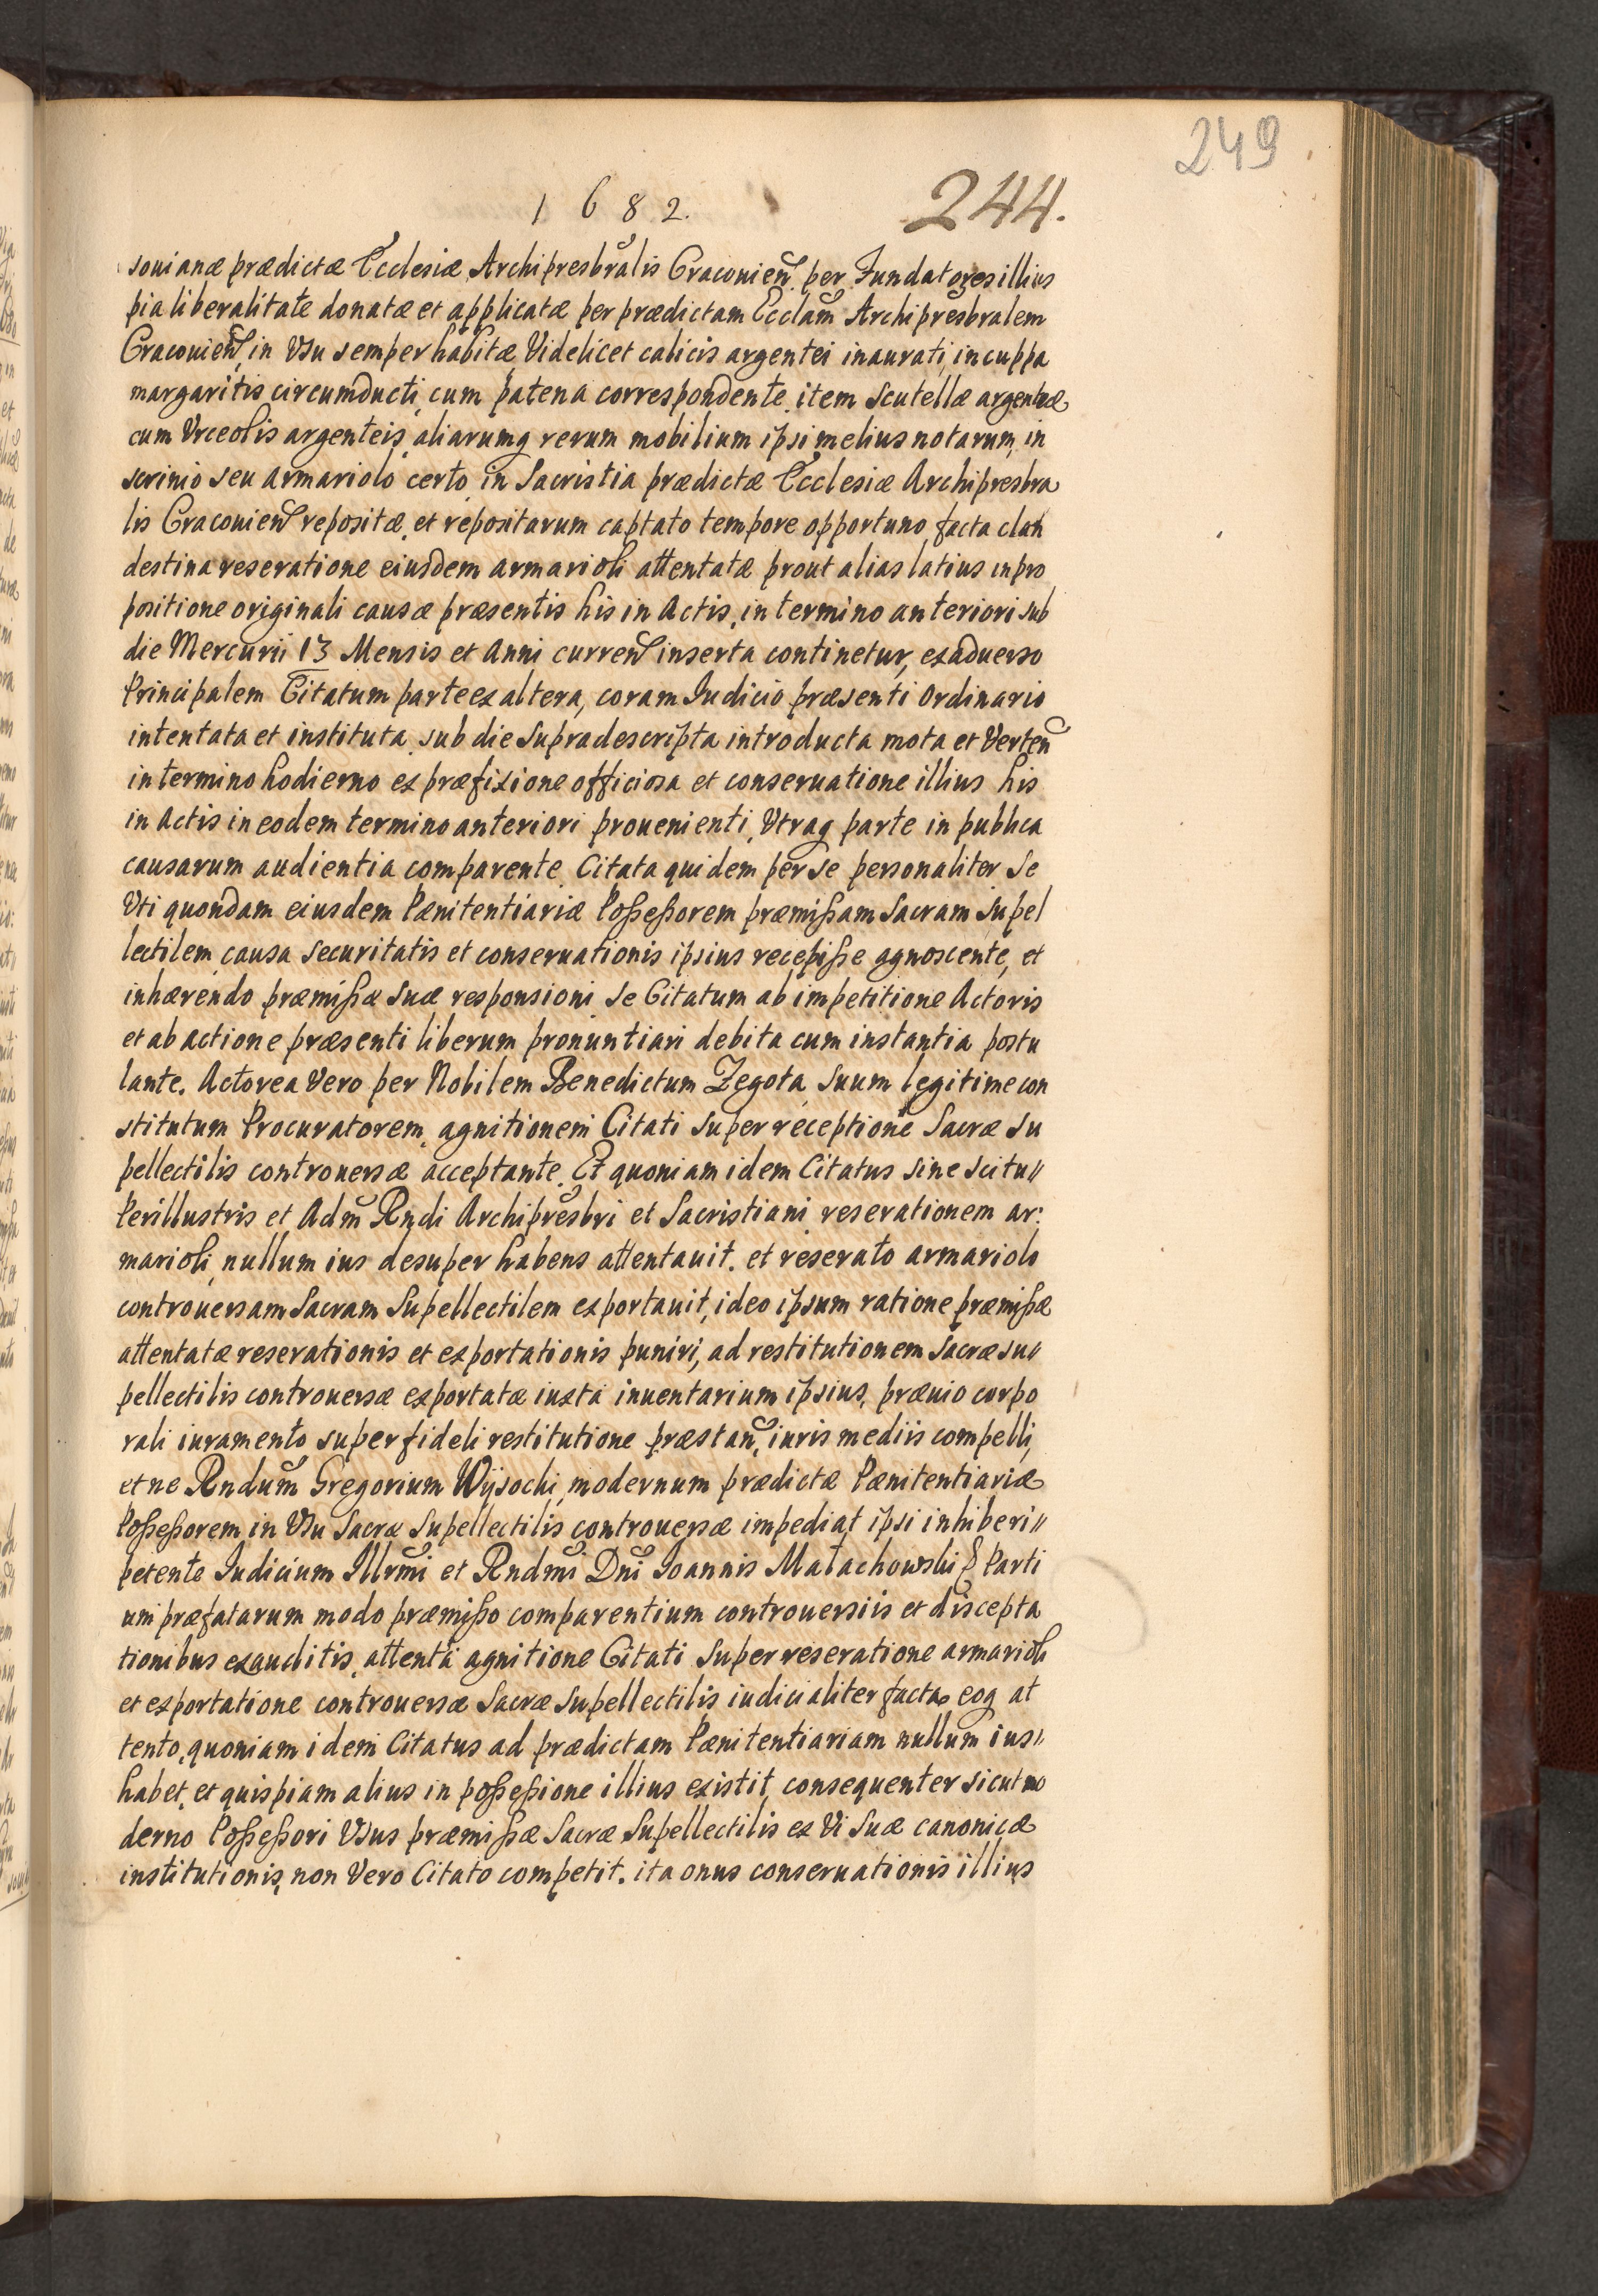 249
1682. 244.
souianæ prædictæ Ecclesiæ Archipresbr̃alis Cracouien̄. per Fundatores illius
pia liberalitate donatæ et applicatæ per prædictam Ecclam̃ Archipresbr̃alem
Cracouien̄, in Vsu semper habitæ Videlicet calicis argentei inaurati, in cuppa
margaritis circumducti, cum patena correspondente, item Scutellæ argenteæ
cum Vrceolis argenteis, aliarumq rerum mobilium ipsi melius notarum, in
scrinio seu armariolo certo in Sacristia prædictæ Ecclesiæ Archipresbra
lis Cracouien̄ repositæ, et repositarum captato tempore opportuno facta clan
destina reseratione eiusdem armarioli attentatæ prout alias latius in pro
positione originali causæ præsentis his in Actis, in termino anteriori sub
die Mercurii 13 Mensis et Anni curren̄ inserta continetur, ex aduerso
Principalem Citatum parte ex altera, coram Iudicio præsenti ordinario
intentata et instituta sub die Supradescripta introducta mota et Verten̄
in termino hodierno ex præfixione officiosa et conseruatione illius his
in Actis in eodem termino anteriori prouenienti, Vtraq parte in publica
causarum audientia comparente. Citata quidem per se personaliter Se
Vti quondam eiusdem Pænitentiariæ Poßeßorem præmißam Sacram Supel
lectilem causa Securitatis et conseruationis ipsius recepiße agnoscente, et
inhærendo præmißæ Suæ responsioni Se Citatum ab impetitione Actoris
et ab actione præsenti liberum pronuntiari debita cum instantia postu
lante. Actorea Vero per Nobilem Benedictum Zegota Suum legitime con
stitutum Procuratorem, agnitionem Citati Super receptione Sacræ Su
pellectilis controuersæ acceptante. Et quoniam idem Citatus Sine Scitu//
Perillustris et Adm̃ Rñdi Archipresbr̃i et Sacristiani reserationem ar:
marioli nullum ius desuper habens attentauit. et reserato armariolo
controuersam Sacram Supellectilem exportauit, ideo ipsum ratione præmißæ
attentatæ reserationis et exportationis puniri, ad restitutionem Sacræ Su//
pellectilis controuersæ exportatæ iuxta inuentarium ipsius, præuio corpo
rali iuramento super fideli restitutione præstan̄, iuris mediis compelli,
et ne Rndum̃ Gregorium Wÿsocki modernum prædictæ Pænitentiariæ
Poßeßorem in Vsu Sacræ Supellectilis controuersæ impediat ipsi inhiberi//
petente Iudicium Illrmĩ et Rndmĩ Dñi Ioannis Małachowski & Parti
um præfatarum modo præmißo comparentium controuersiis et discepta
tionibus exauditis, attenta agnitione Citati Super reseratione armarioli
et exportatione controuersæ Sacræ Supellectilis iudicialiter facta, eoq at
tento, quoniam idem Citatus ad prædictam Pænitentiariam nullum ius//
habet, et quispiam alius in poßeßione illius existit, consequenter sicut mo
derno Poßeßori Vsus præmißæ Sacræ Supellectilis ex Vi Suæ canonicæ
institutionis, non Vero Citato competit. ita onus conseruationis illius